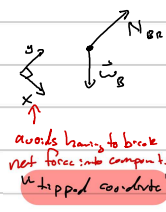 y
N_BR
x
w_B
avoids having to break
net force into component
"tipped coordinate